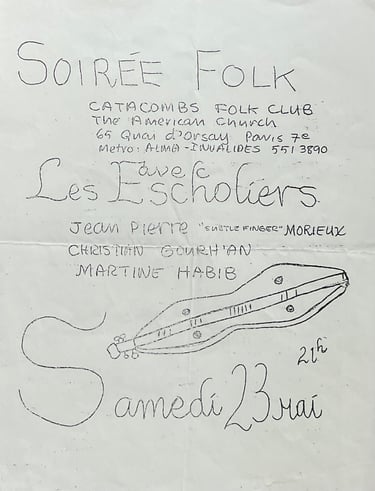 SOIRÉE FOLK
CATACOMBS FOLK CLUB
The American Church
65 Quai d'Orsay Paris 7e
Metro: ALMA - INVALIDES 551 3890
avec
Les Escholiers
Jean Pierre "SUBTLE FINGER" MORIEUX
CHRISTIAN GOURH'AN
MARTINE HABIB
21h
Samedi 23 mai